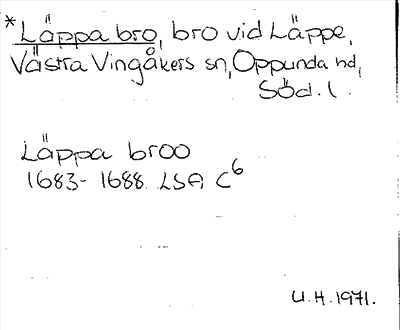 *Läppa bro, bro vid Läppe,
Västra Vingåkers sn, Oppunda hd,
Söd. l.
Läppa broo
1683-1688 LSA C6
U.H.1971.